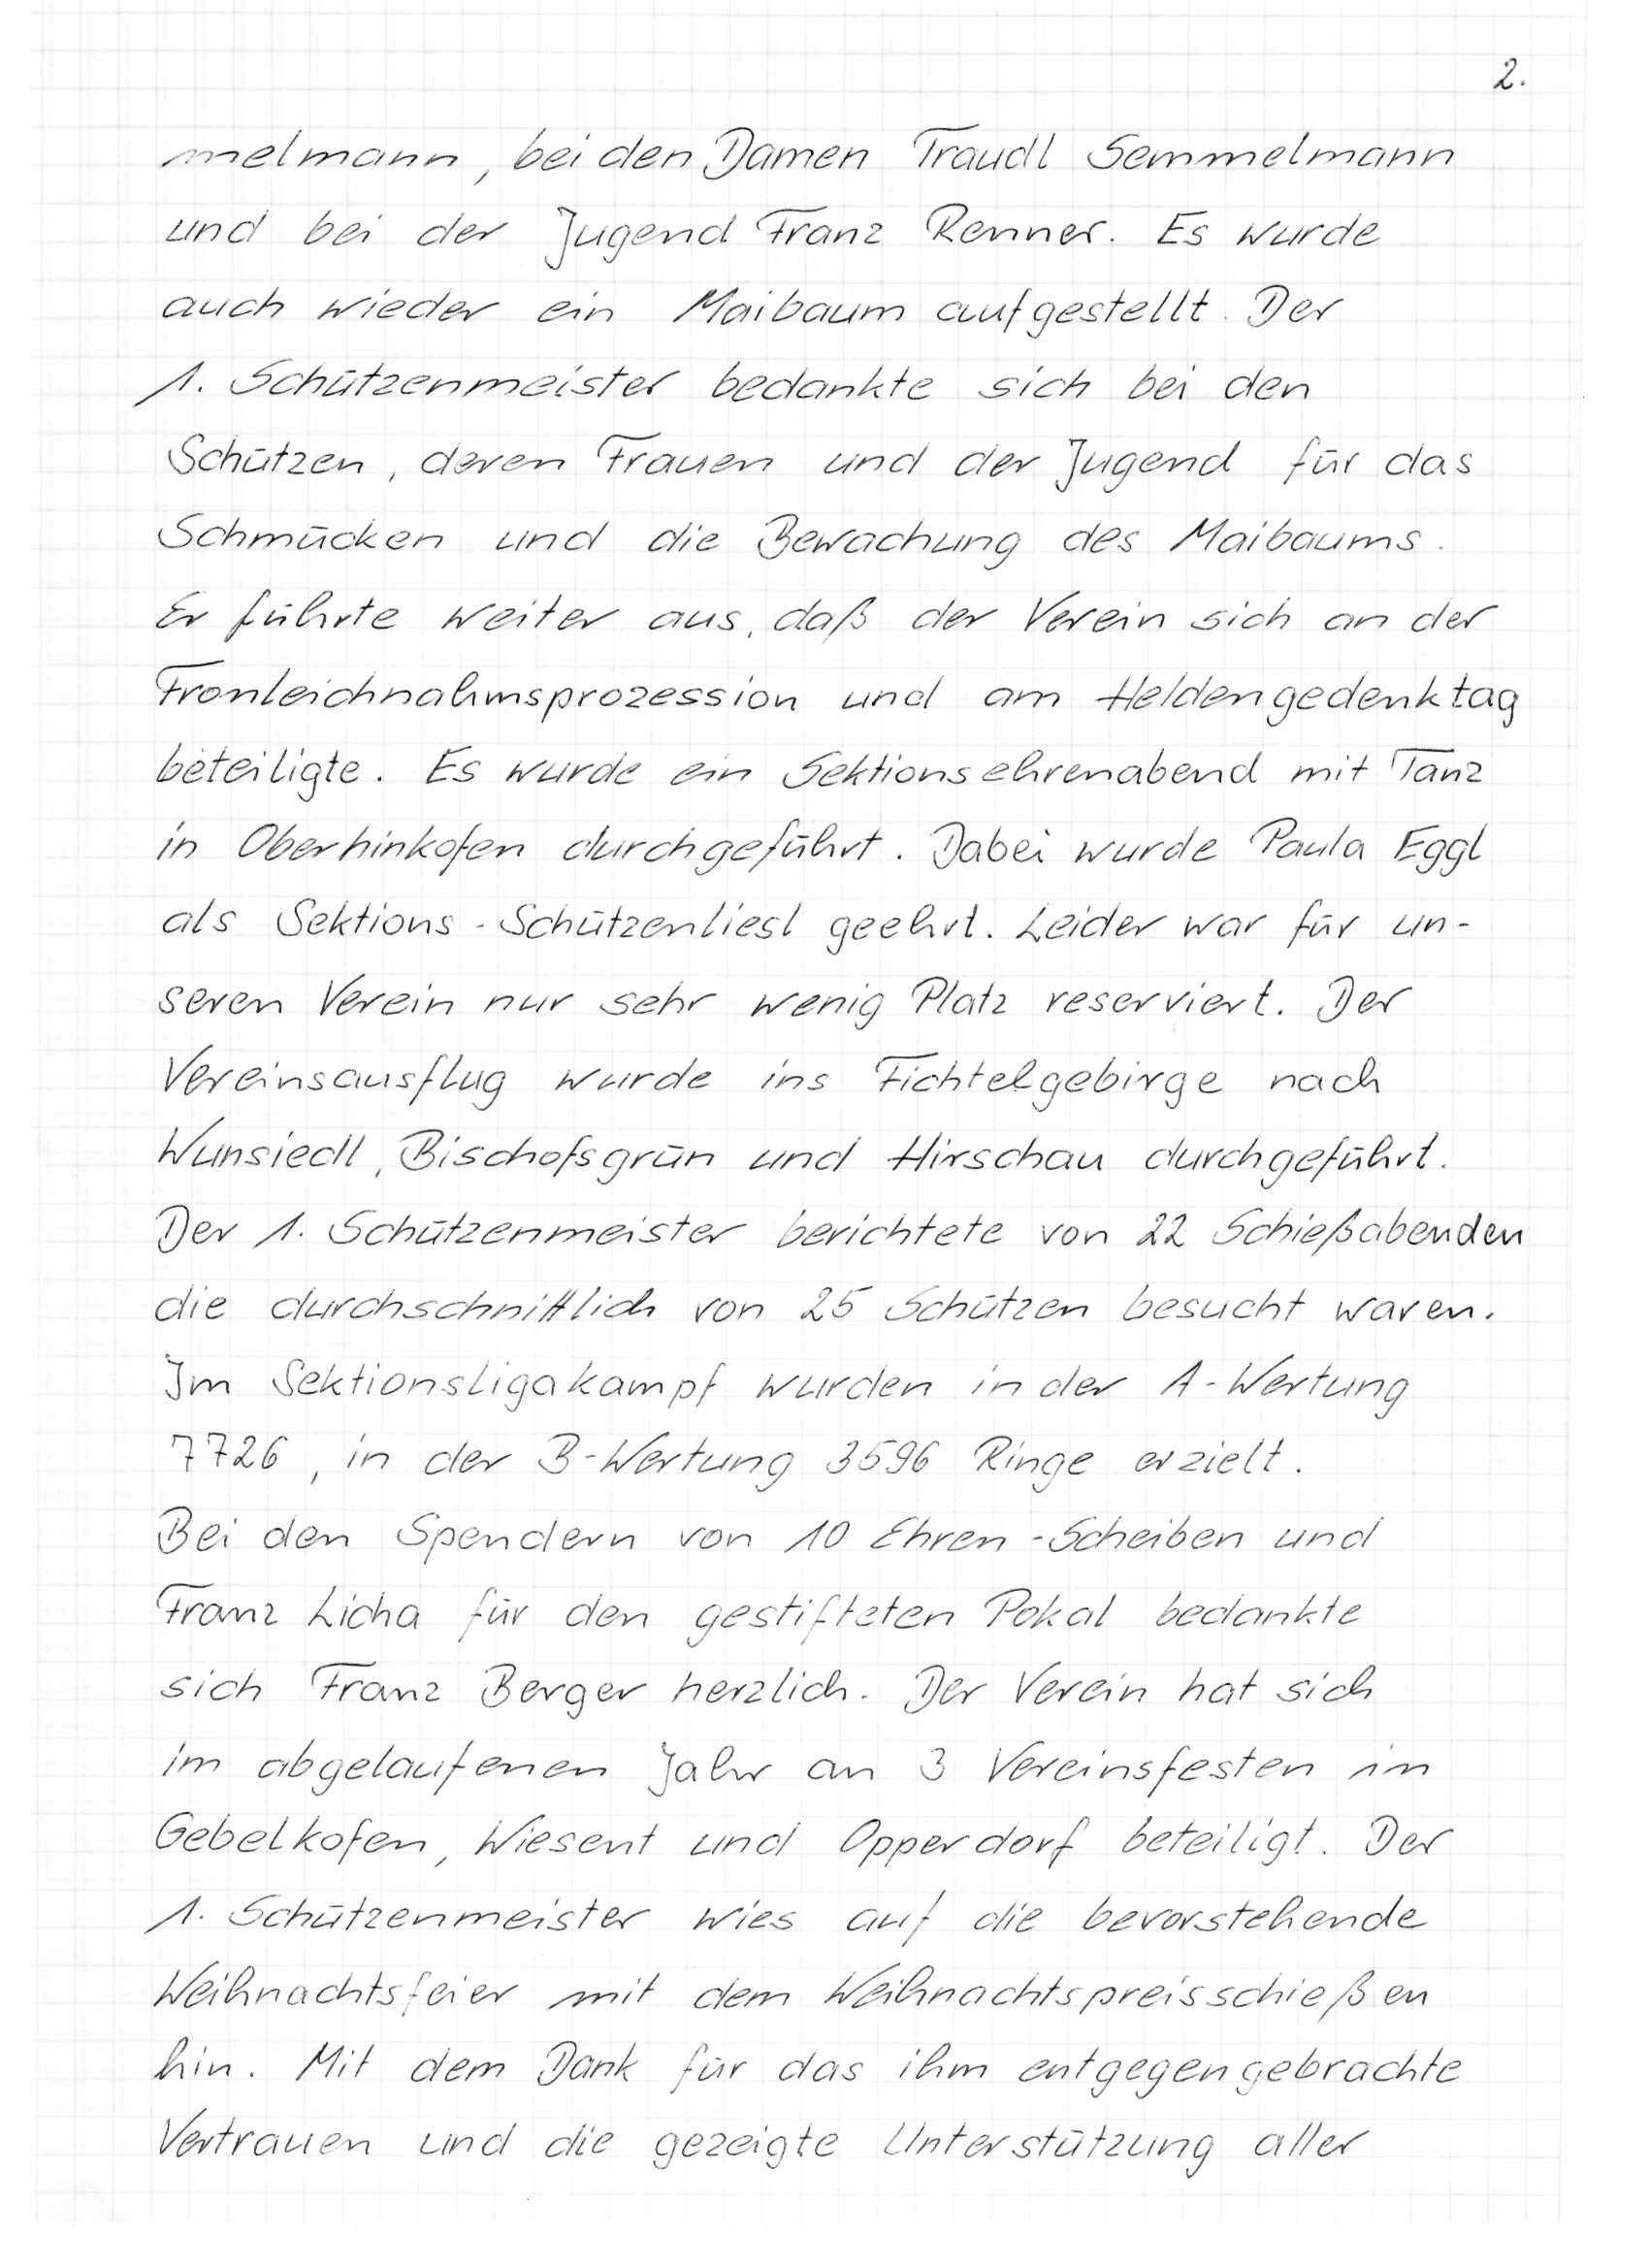 2.
mmelmann, bei den Damen Traudl Semmelmann
und bei der Jugend Franz Renner. Es wurde
auch wieder ein Maibaum aufgestellt. Der
1. Schützenmeister bedankte sich bei den
Schützen, deren Frauen und der Jugend für das
Schmücken und die Bewachung des Maibaums.
Er führte weiter aus, daß der Verein sich an der
Fronleichnahmsprozession und am Heldengedenktag
beteiligte. Es wurde ein Sektionsehrenabend mit Tanz
in Oberhinkofen durchgeführt. Dabei wurde Paula Eggl
als Sektions-Schützenliesl geehrt. Leider war für un-
seren Verein nur sehr wenig Platz reserviert. Der
Vereinsausflug wurde ins Fichtelgebirge nach
Wunsiedl, Bischofsgrün und Hirschau durchgeführt.
Der 1. Schützenmeister berichtete von 22 Schießabenden
die durchschnittlich von 25 Schützen besucht waren.
Im Sektionsligakampf wurden in der A-Wertung
7726, in der B-Wertung 3596 Ringe erzielt.
Bei den Spendern von 10 Ehren-Scheiben und
Franz Licha für den gestifteten Pokal bedankte
sich Franz Berger herzlich. Der Verein hat sich
im abgelaufenen Jahr an 3 Vereinsfesten in
Gebelkofen, Wiesent und Opperdorf beteiligt. Der
1. Schützenmeister wies auf die bevorstehende
Weihnachtsfeier mit dem Weihnachtspreisschießen
hin. Mit dem Dank für das ihm entgegengebrachte
Vertrauen und die gezeigte Unterstützung aller